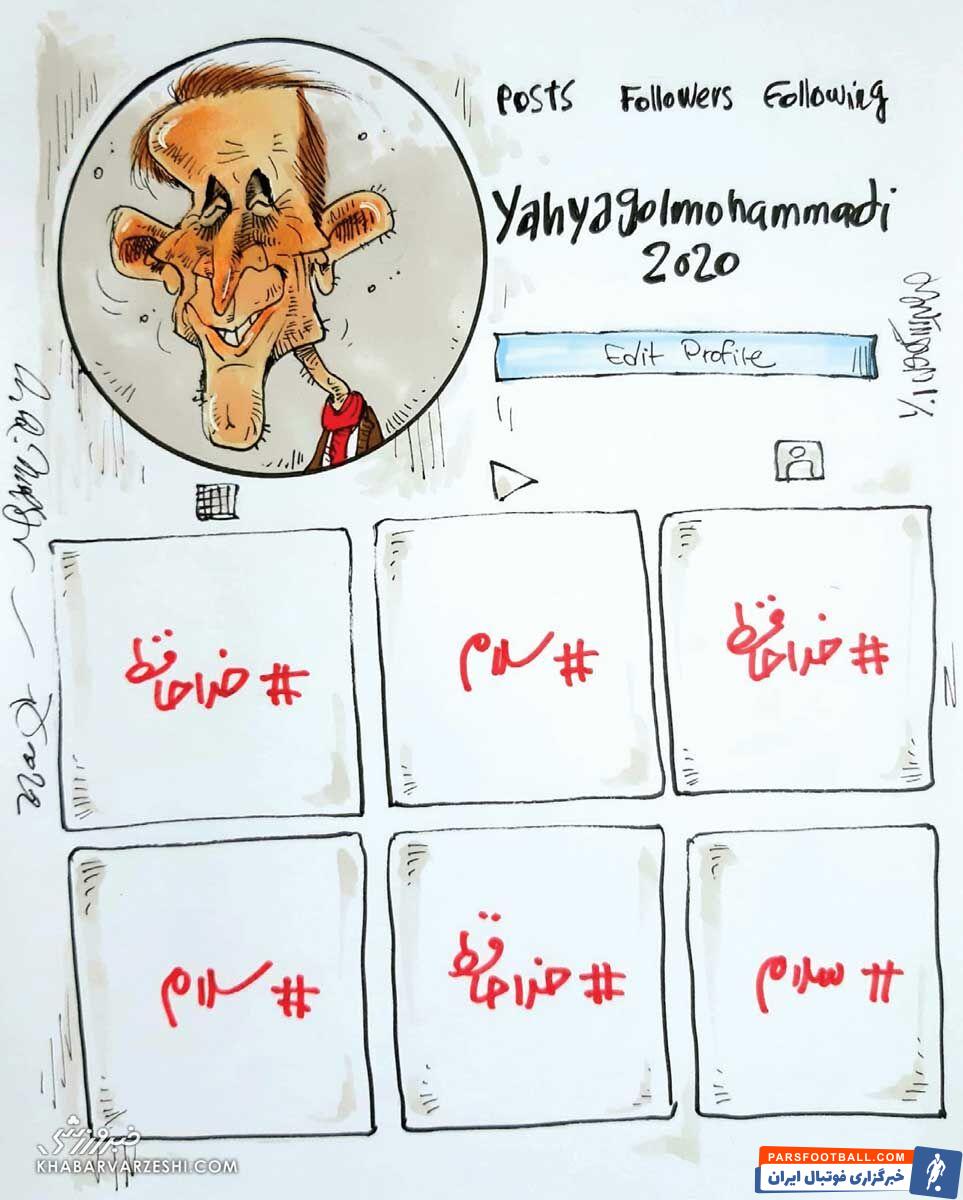 Posts Followers Following
Yahyagolmohammadi
2020
Edit Profile
#خداحافظ
#سلام
#خداحافظ
#سلام
#خداحافظ
#سلام
خبرورزشی
KHABARVARZESHI.COM
PARSFOOTBALL.COM
خبرگزاری فوتبال ایران